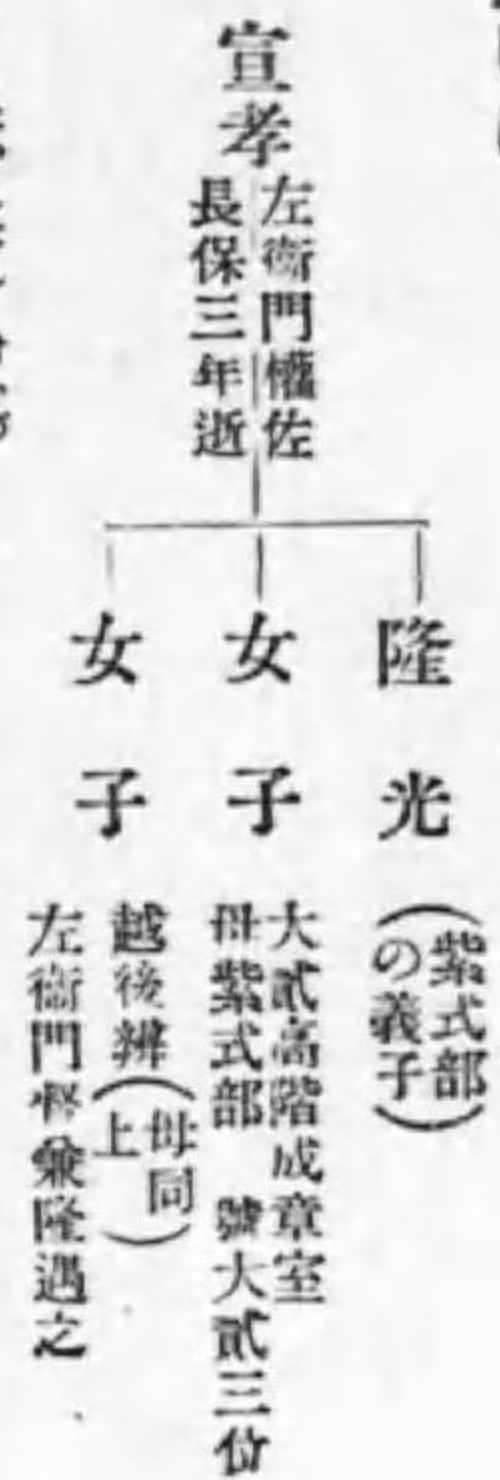 宣孝
左衞門權佐
長保三年逝
隆光
(紫式部
の義子)
女子
大貳高階成章室
母紫式部 號大貳三位
女子
越後辨(母同
上)
左衞門督兼隆遇之